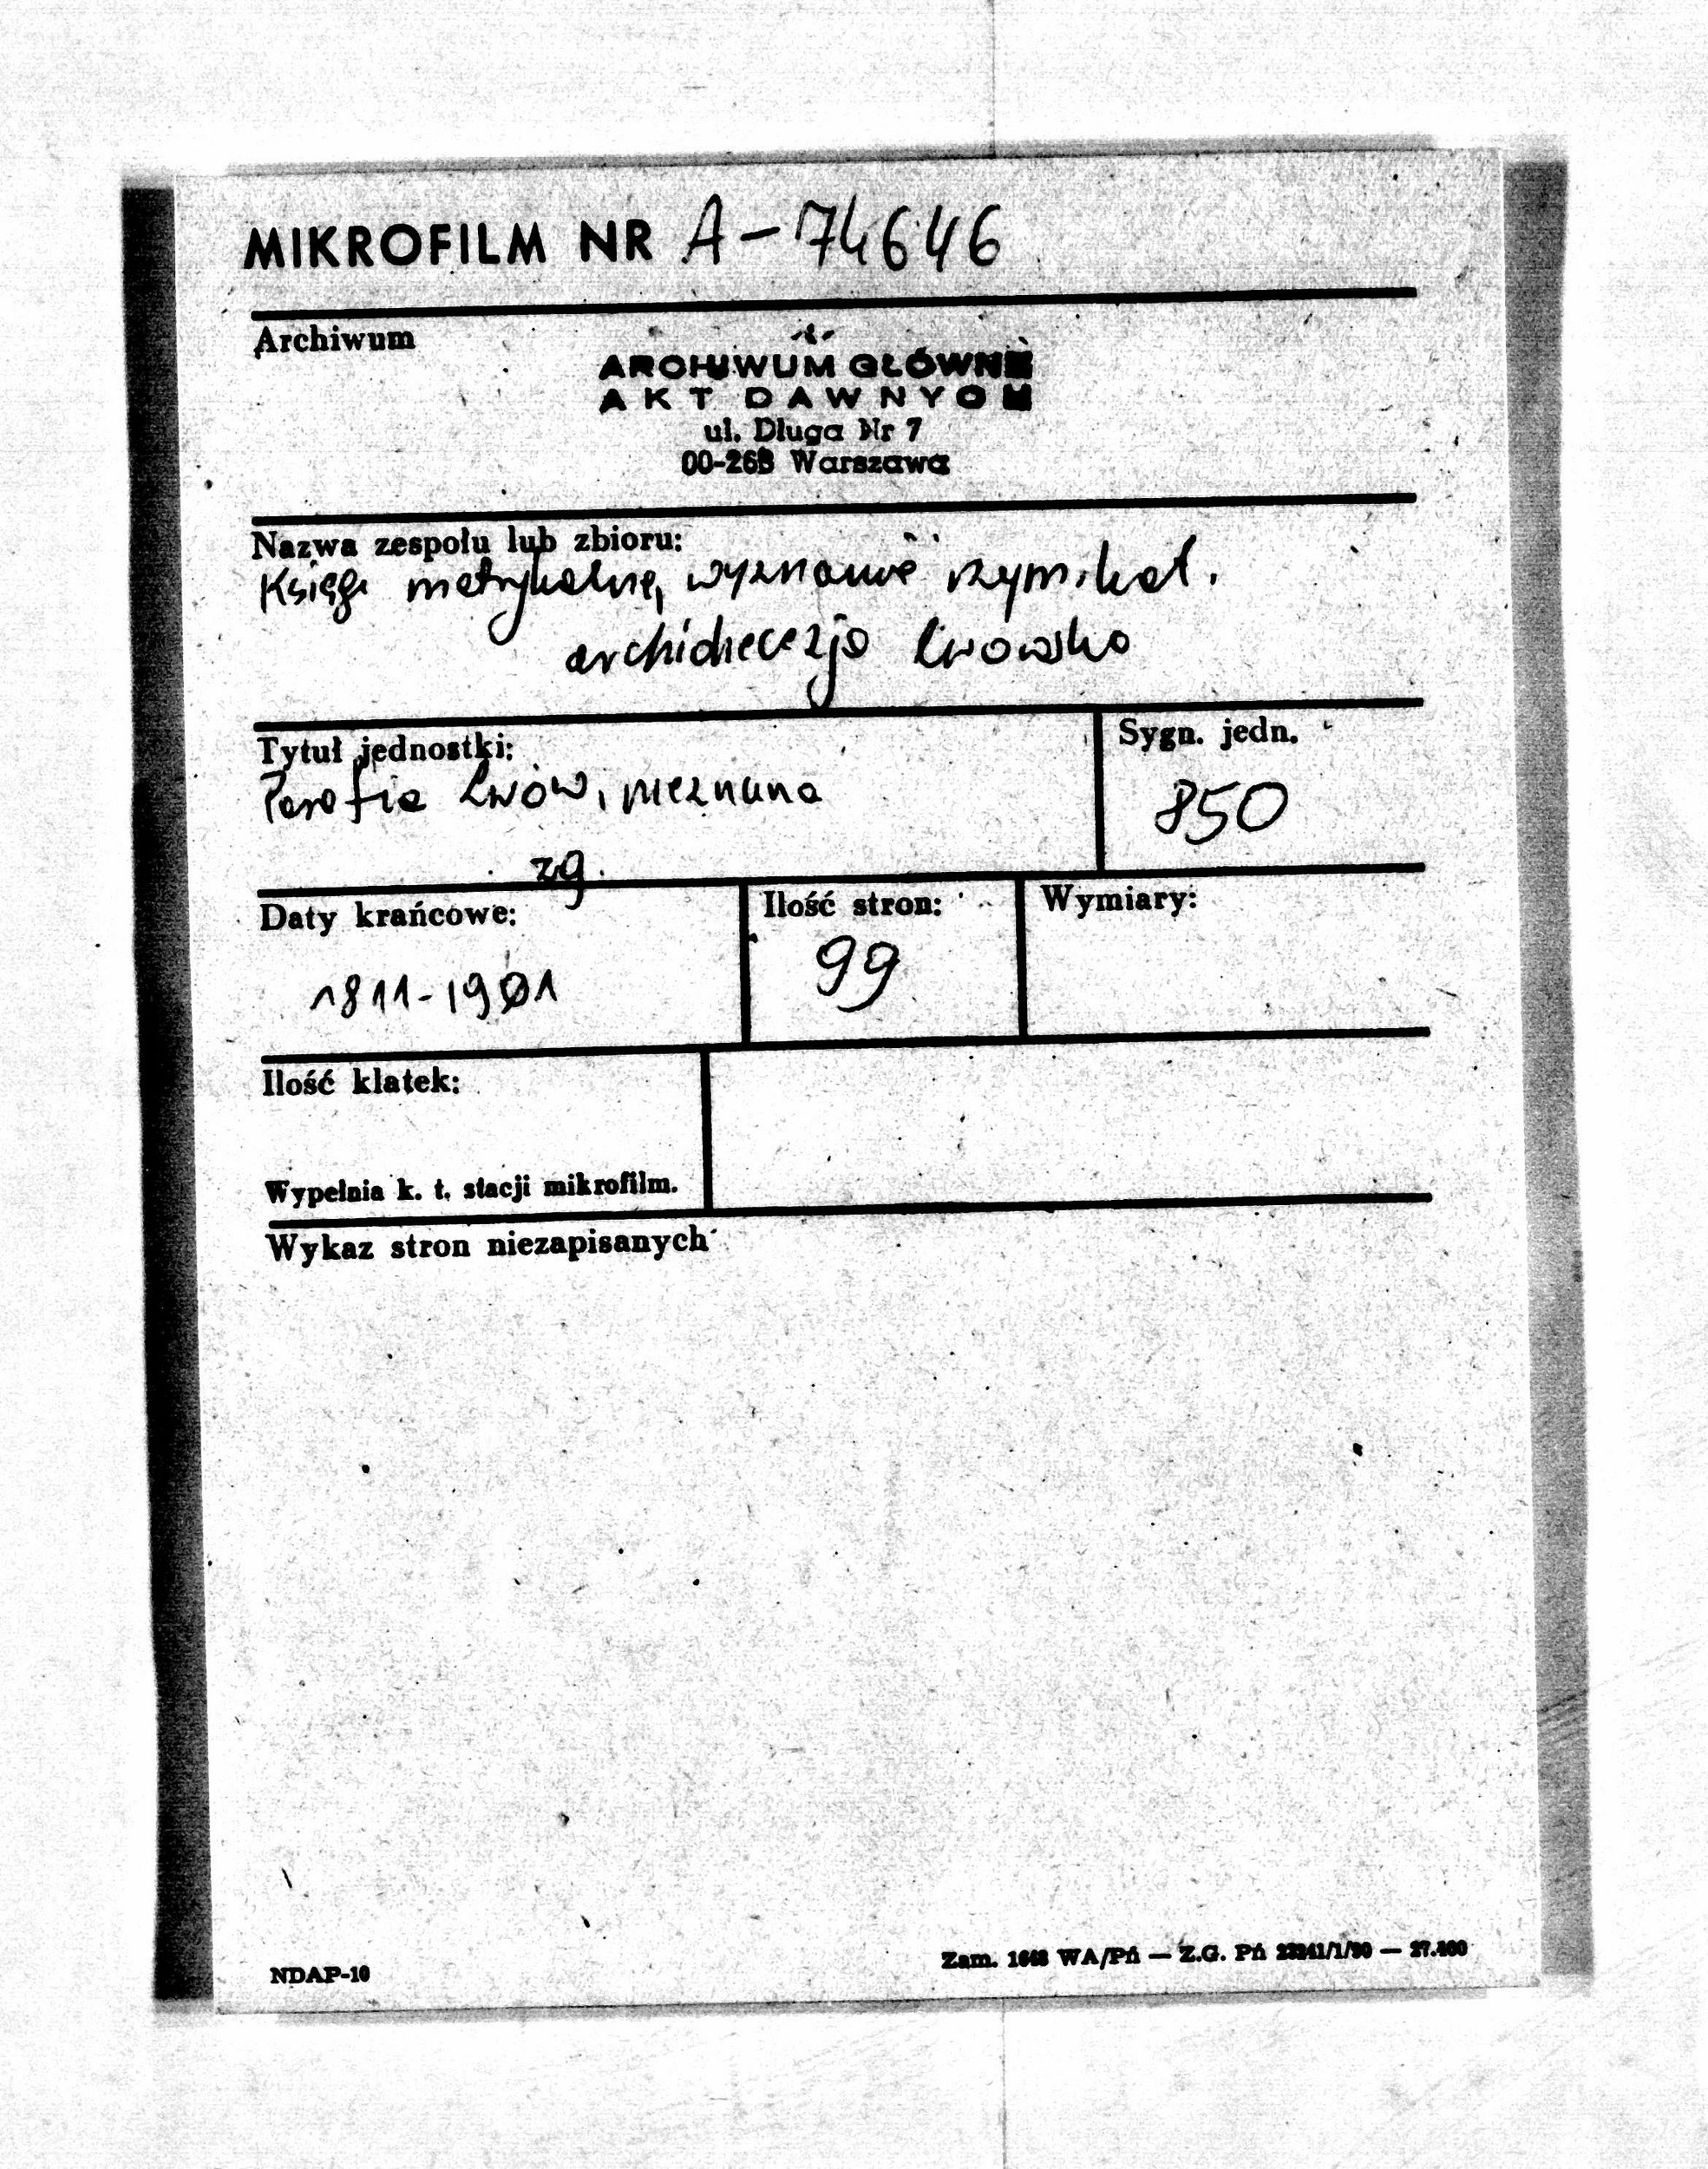 MIKROFILM NR A-74646
Archiwum
ARCHIWUM GŁÓWNE
AKT DAWNYCH
ul. Długa Nr 7
00-263 Warszawa
Nazwa zespołu lub zbioru:
Księgi metrykalne, wyznanie rzym.kat.
archidiecezja lwowska
Tytuł jednostki:
Parafia Lwów, nieznana
zg.
Sygn. jedn.
850
Daty krańcowe:
1811-1901
Ilość stron:
99
Wymiary:
Ilość klatek:
Wypełnia k. t. stacji mikrofilm.
Wykaz stron niezapisanych
NDAP-10
Zam. WA/Pń — Z.G. Pń